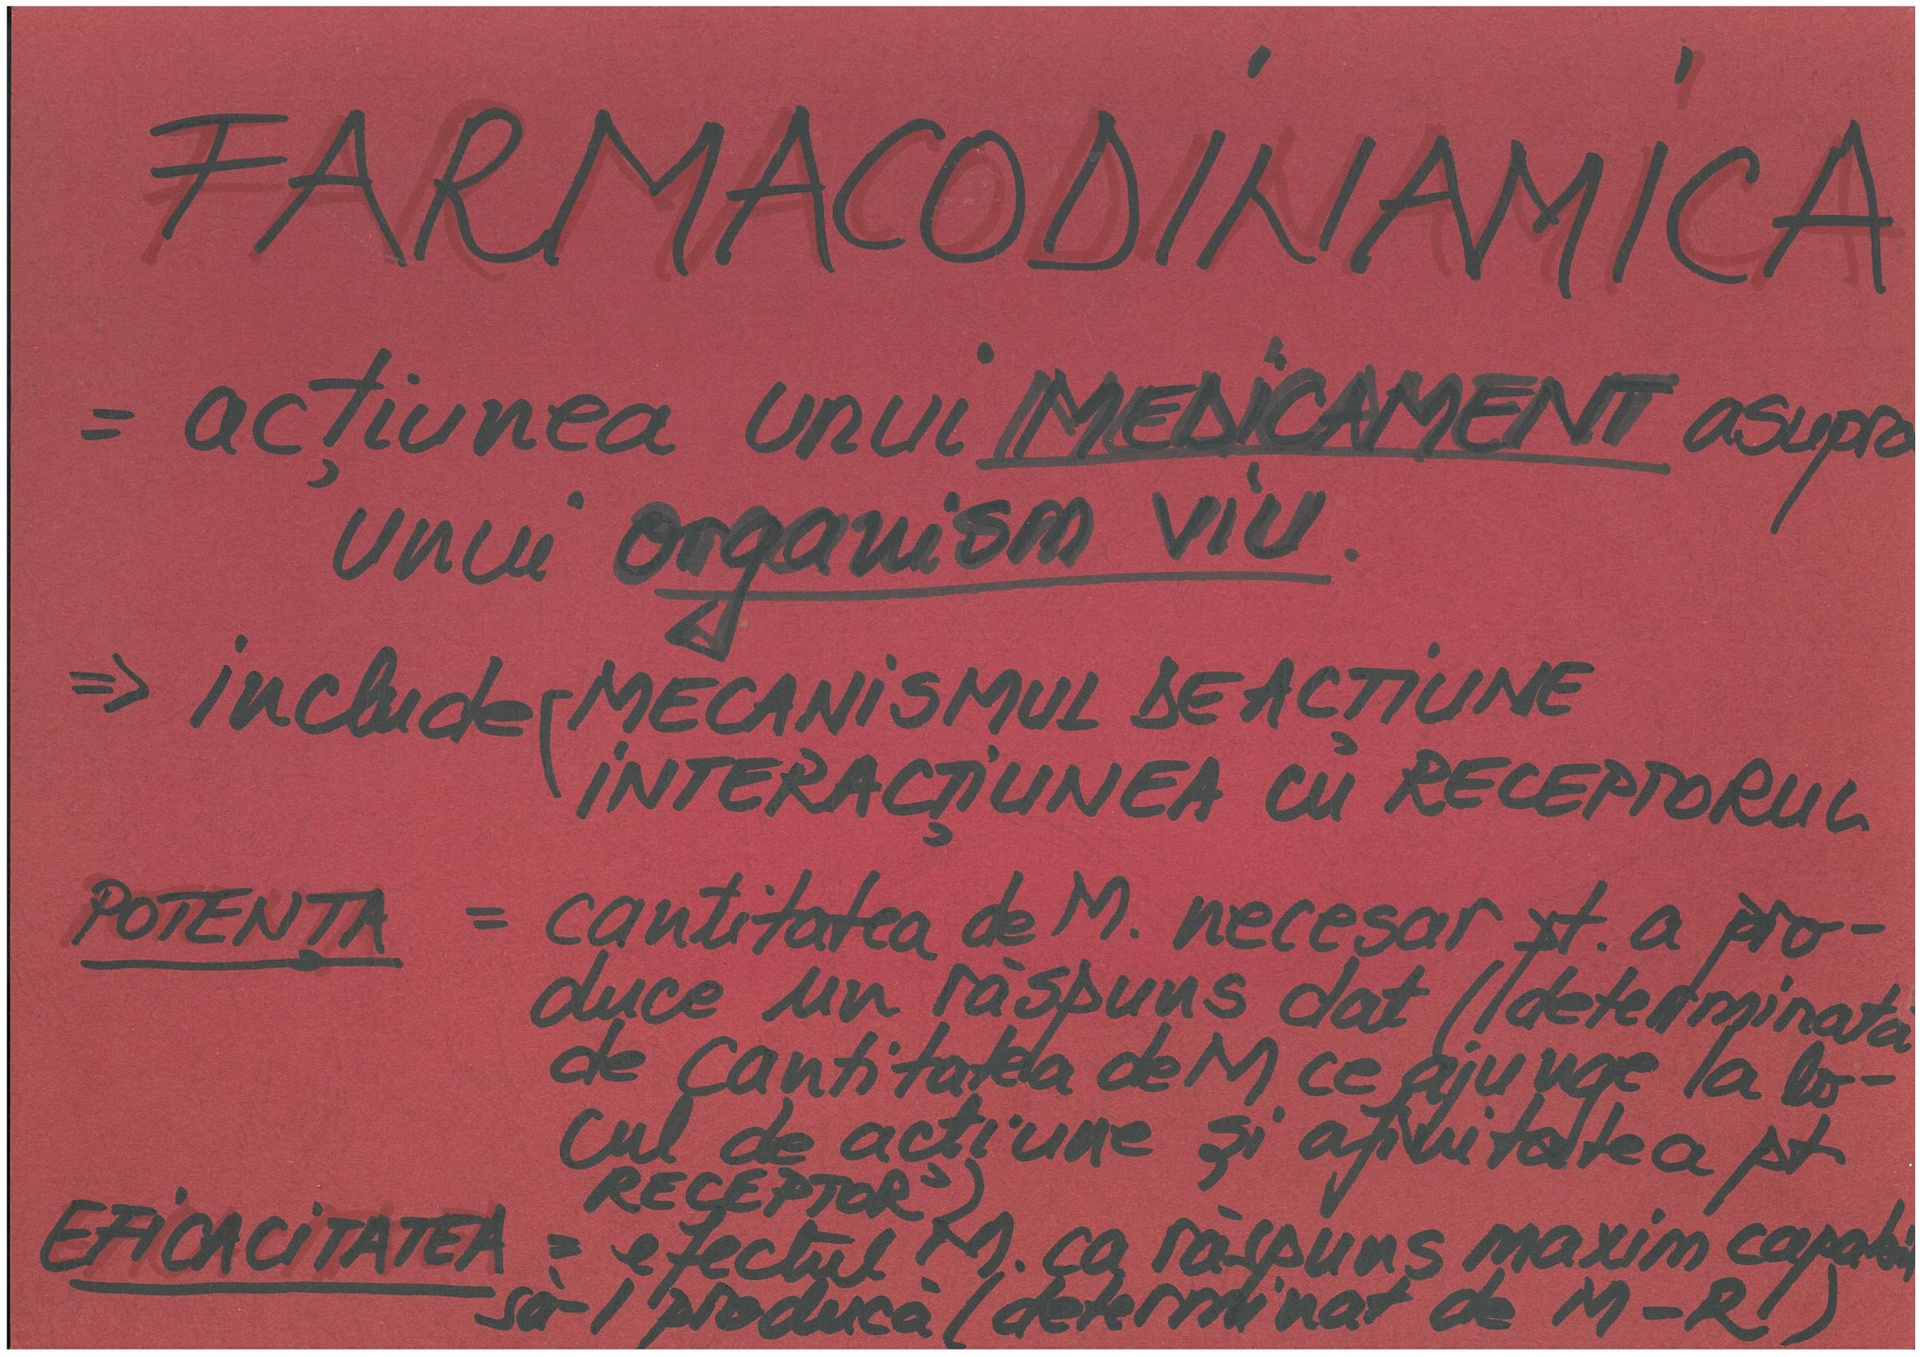 FARMACODINAMICA
= acțiunea unui MEDICAMENT asupra
unui organism viu.
=> include MECANISMUL DE ACȚIUNE
INTERACȚIUNEA cu RECEPTORUL
POTENȚA = cantitatea de M. necesar pt. a pro-
duce un răspuns dat (determinată
de cantitatea de M ce ajunge la lo-
cul de actiune și afinitatea pt
RECEPTOR)
EFICACITATEA = efectul M. ca răspuns maxim capabil
să-l producă (determinat de M-R)